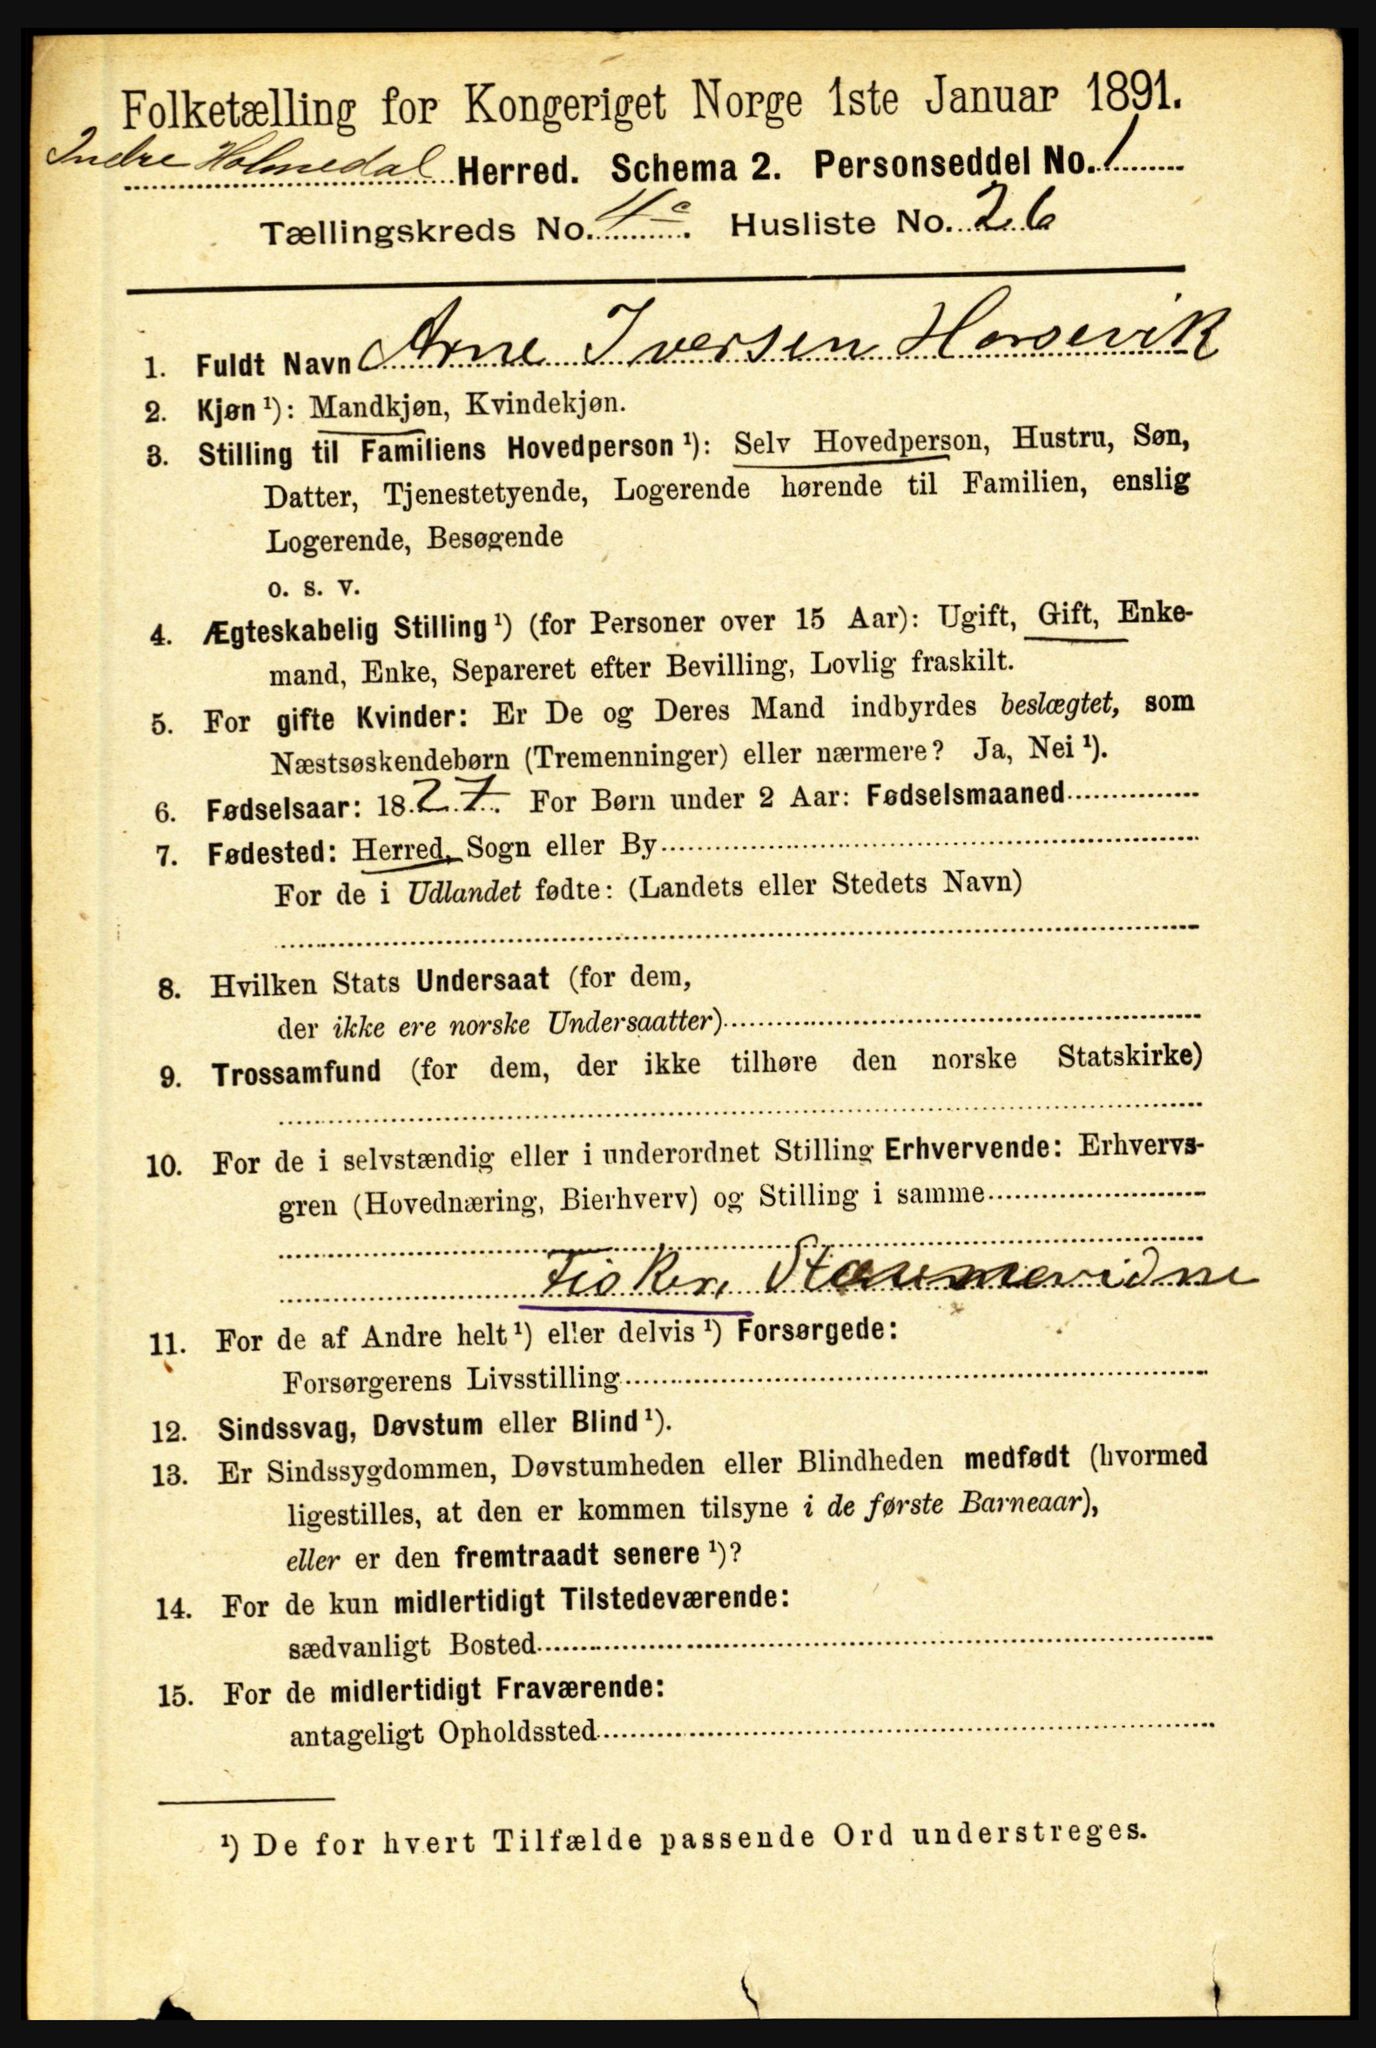 Folketælling for Kongeriget Norge 1ste Januar 1891.
Indre Holmedal Herred. Schema 2. Personseddel No. 1
Tællingskreds No. 4c. Husliste No. 26
1. Fuldt Navn Arne Iversen Horsevik
2. Kjøn¹): Mandkjøn, Kvindekjøn.
3. Stilling til Familiens Hovedperson¹): Selv Hovedperson, Hustru, Søn,
Datter, Tjenestetyende, Logerende hørende til Familien, enslig
Logerende, Besøgende
o. s. v.
4. Ægteskabelig Stilling¹) (for Personer over 15 Aar): Ugift, Gift, Enke-
mand, Enke, Separeret efter Bevilling, Lovlig fraskilt.
5. For gifte Kvinder: Er De og Deres Mand indbyrdes beslægtet, som
Næstsøskendebørn (Tremenninger) eller nærmere? Ja, Nei¹).
6. Fødselsaar: 1827. For Børn under 2 Aar: Fødselsmaaned
7. Fødested: Herred, Sogn eller By
For de i Udlandet fødte: (Landets eller Stedets Navn)
8. Hvilken Stats Undersaat (for dem,
der ikke ere norske Undersaatter)
9. Trossamfund (for dem, der ikke tilhøre den norske Statskirke)
10. For de i selvstændig eller i underordnet Stilling Erhvervende: Erhvervs-
gren (Hovednæring, Bierhverv) og Stilling i samme
Fisker,
11. For de af Andre helt¹) eller delvis¹) Forsørgede:
Forsørgerens Livsstilling
12. Sindssvag, Døvstum eller Blind¹).
13. Er Sindssygdommen, Døvstumheden eller Blindheden medfødt (hvormed
ligestilles, at den er kommen tilsyne i de første Barneaar),
eller er den fremtraadt senere¹)?
14. For de kun midlertidigt Tilstedeværende:
sædvanligt Bosted
15. For de midlertidigt Fraværende:
antageligt Opholdssted
¹) De for hvert Tilfælde passende Ord understreges.